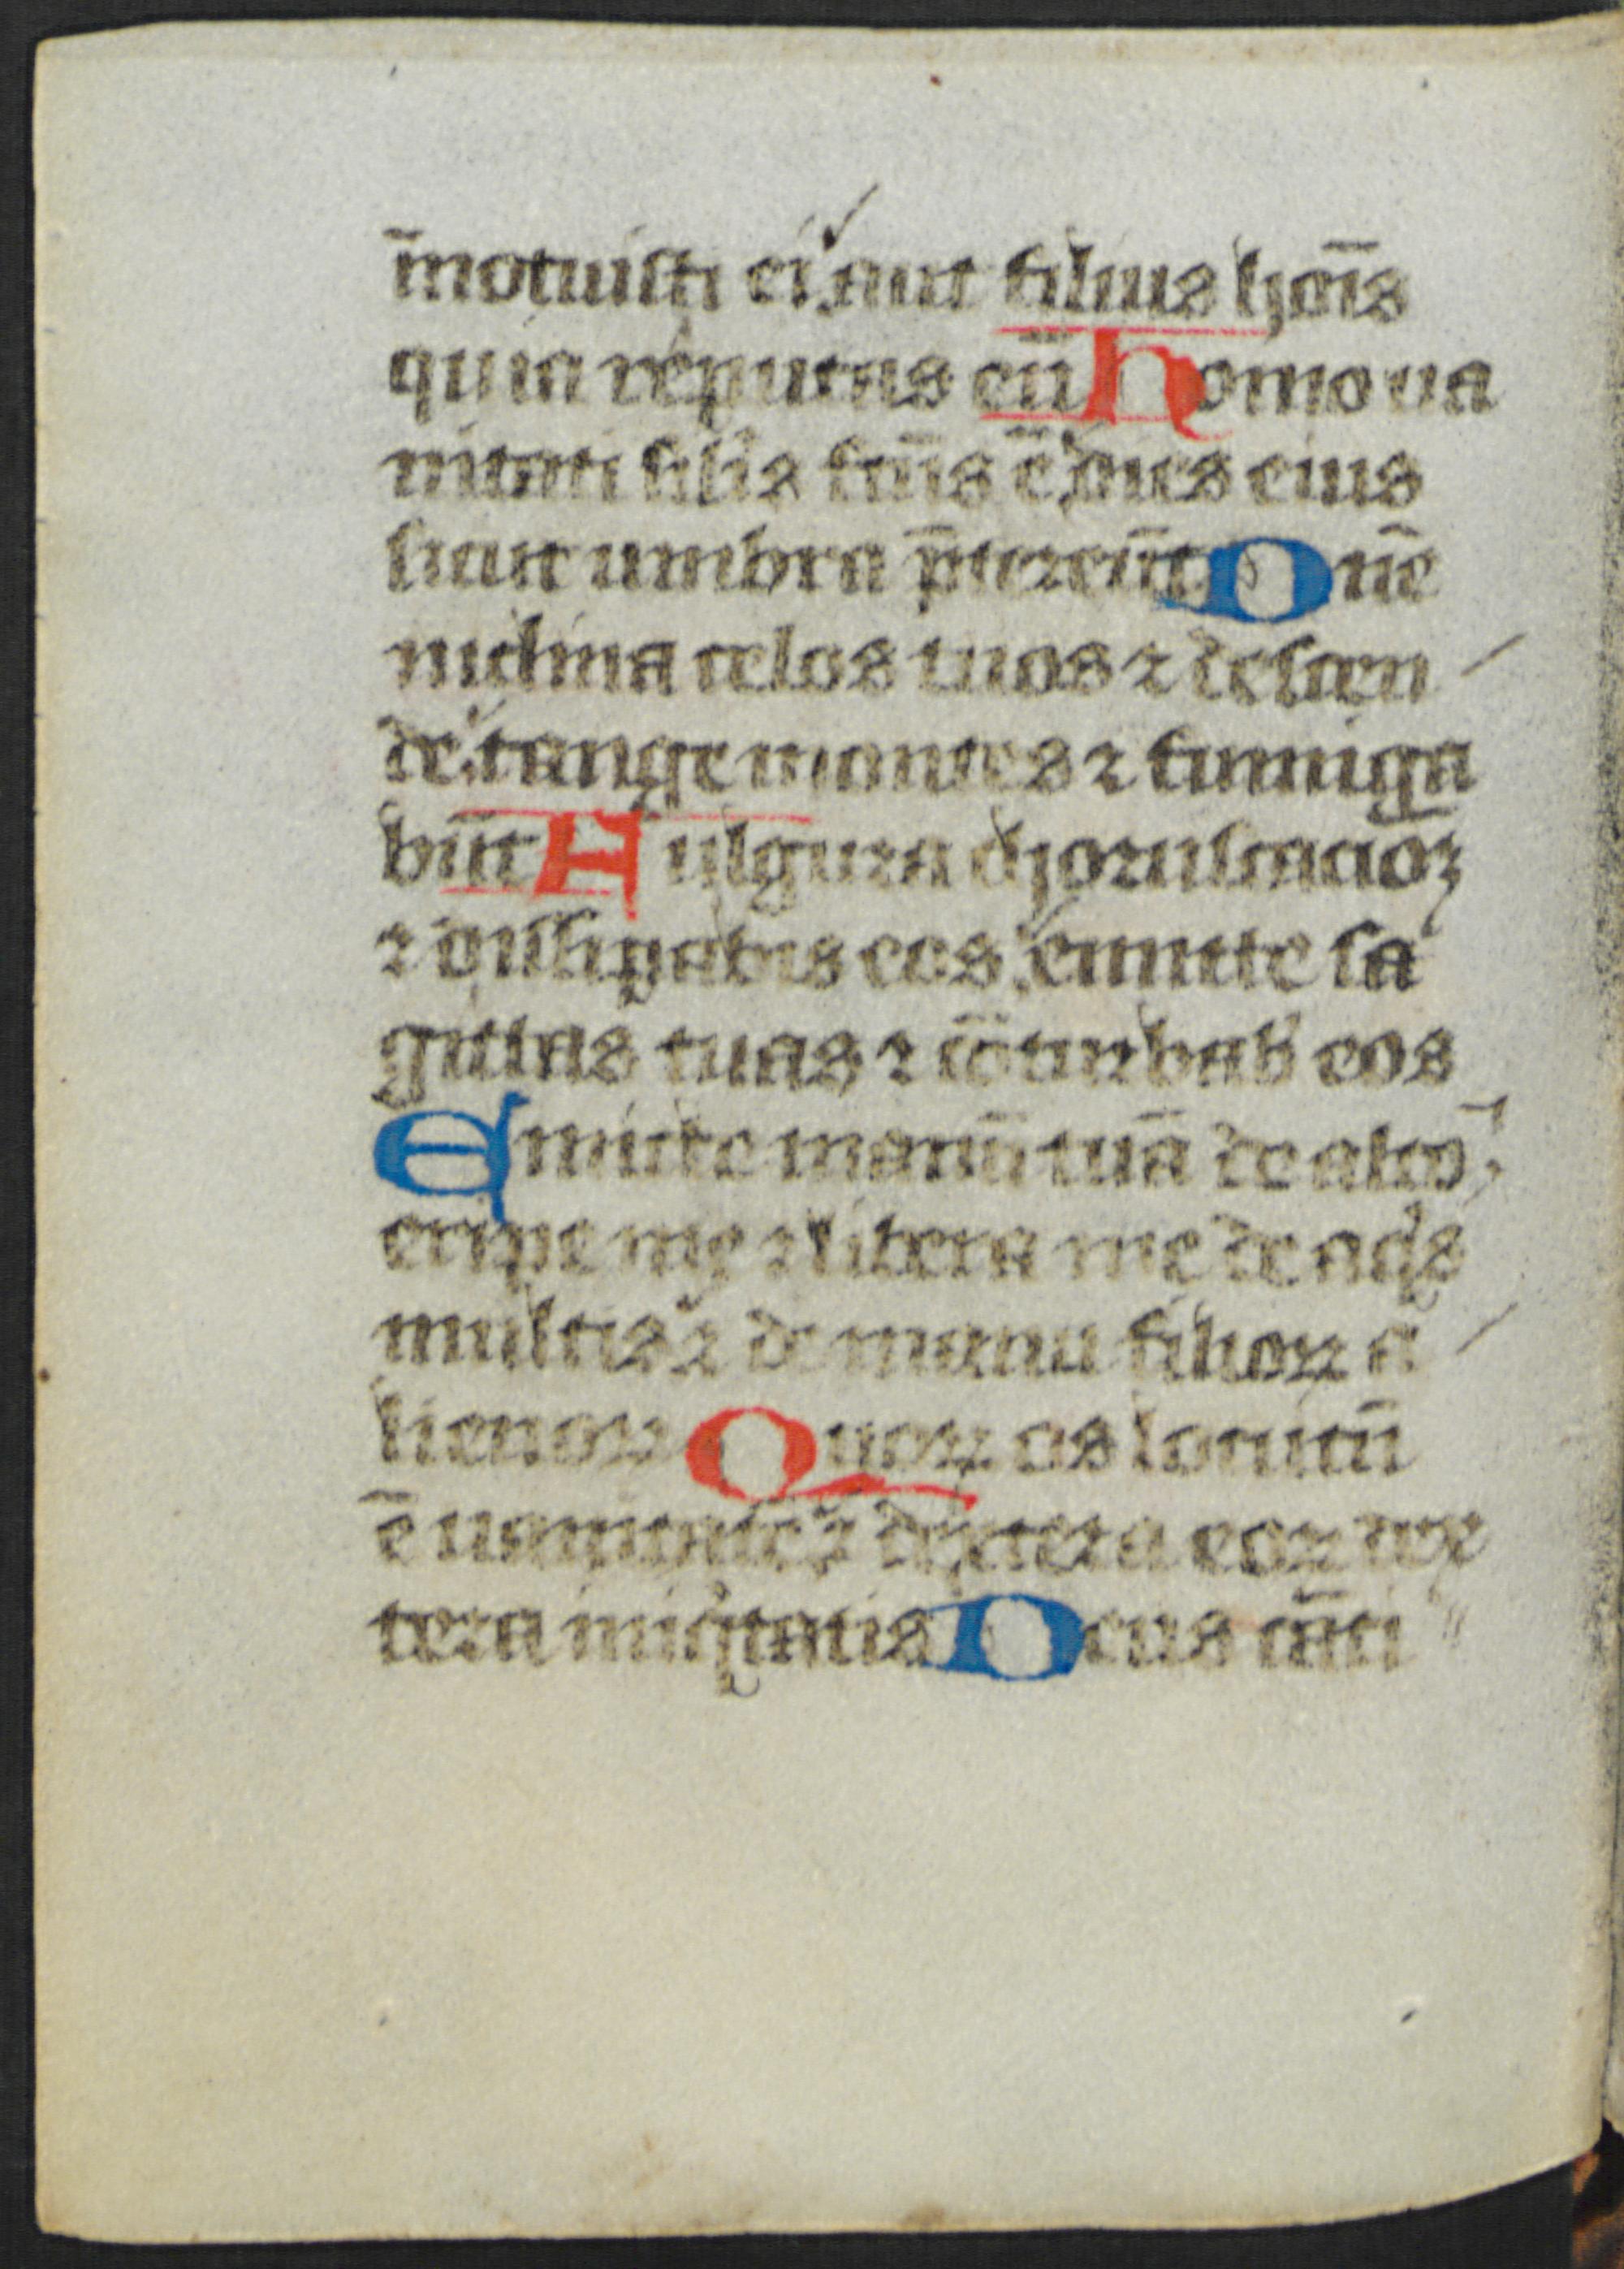 īnotuisti ei aut filius hoīs
quia reputas eū Homo ua
nitati silīs fcūs ē dies eius
sicut umbra p̄tereūt Dn̄e
inclina celos tuos ⁊ descen
de tange montes ⁊ fumiga
būt Fulgura choruscacioꝫ
⁊ dissipabis eos emitte sa
gittas tuas ⁊ cōturbab eos
Emitte manū tuā de alto
eripe me ⁊ libera me de aqͥs
multis ⁊ de manu filioꝝ a
lienoꝝ Quoꝝ os locutū
ē uanitatē ⁊ dextera eoꝝ dex
tera iniqͥtatis Deus cāti